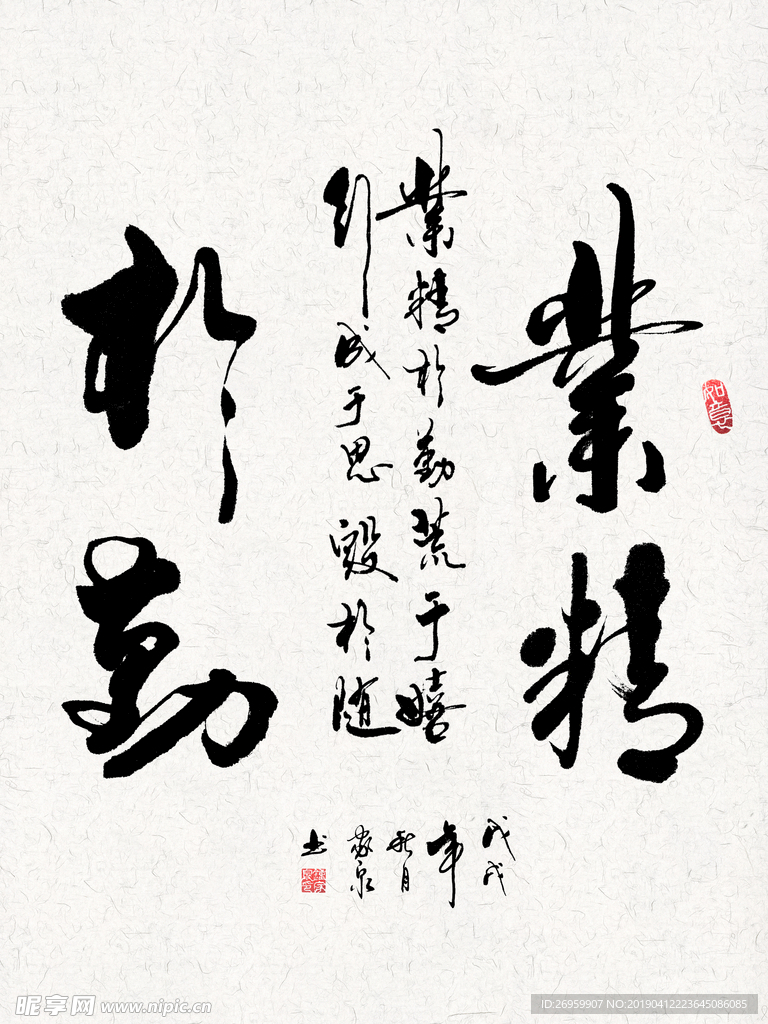 業精
於勤
業精於勤荒于嬉
行成于思毁於随
戊戌
年
秋月
泉
书
如意
昵享网 www.nipic.cn
ID:26959907 NO:20190412223645086085